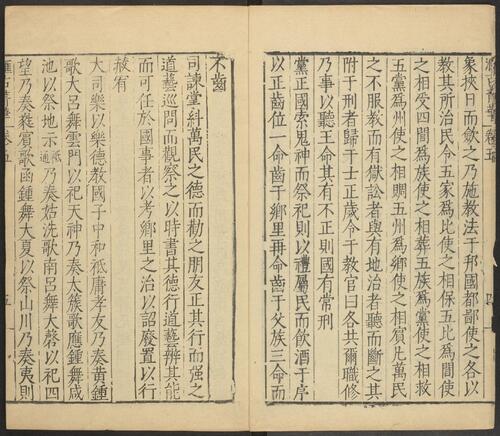 象挾日而斂之乃施教法于邦國都鄙使之各以
教其所治民令五家爲比使之相保五比爲閭使
之相受四閭爲族使之相葬五族爲黨使之相救
五黨爲州使之相賙五州爲鄉使之相賓凡萬民
之不服教而有獄訟者與有地治者聽而斷之其
附于刑者歸于士正歲令于教官曰各共爾職修
乃事以聽王命其有不正則國有常刑
黨正國索鬼神而祭祀則以禮屬民而飲酒于序
以正齒位一命齒于鄉里再命齒于父族三命而
不齒
司諫掌糾萬民之德而勸之朋友正其行而强之
道藝巡問而觀察之以時書其德行道藝辨其能
而可任於國事者以考鄉里之治以詔廢置以行
赦宥
大司樂以樂德教國子中和祗庸孝友乃奏黃鍾
歌大呂舞雲門以祀天神乃奏大簇歌應鍾舞咸
池以祭地示祗通乃奏姑洗歌南呂舞大磬以祀四
望乃奏蕤賓歌函鍾舞大夏以祭山川乃奏夷則